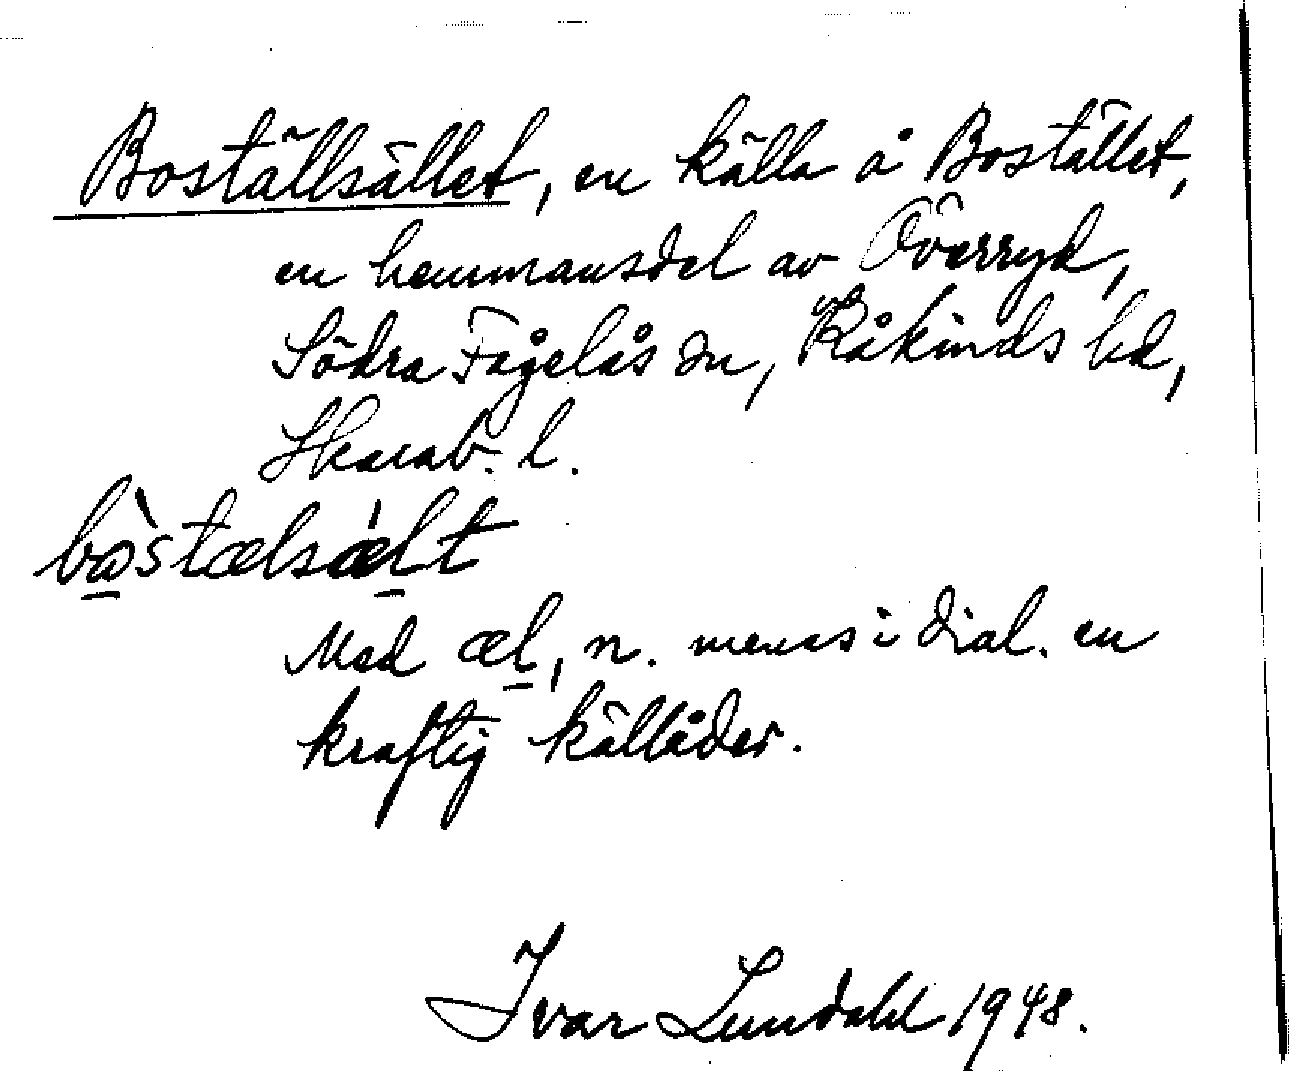 Boställsället, en källa å Bostället,
en hemmansdel av Överryd,
Södra Fågelås sn, Kåkinds hd,
Skarab. l.
bòstælsǽlt
Med æl, n. menas i dial. en
kraftig källåder.
Ivar Lundahl 1948.